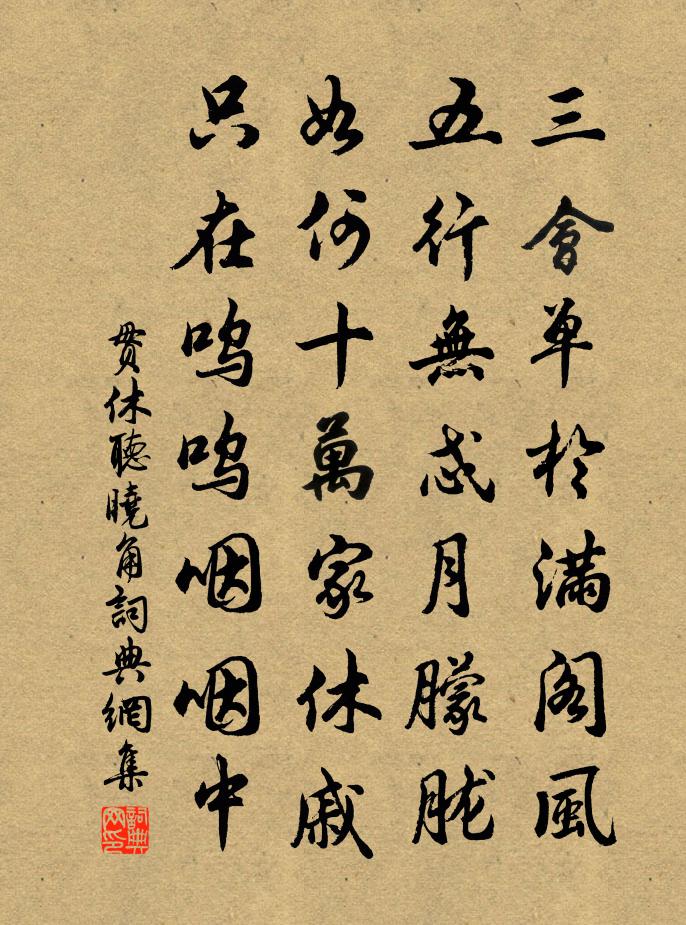 三會單於滿閣風
五行無忒月朦朧
如何十萬家休戚
只在嗚嗚咽咽中
貫休聽曉角詞典網集
詞典网印